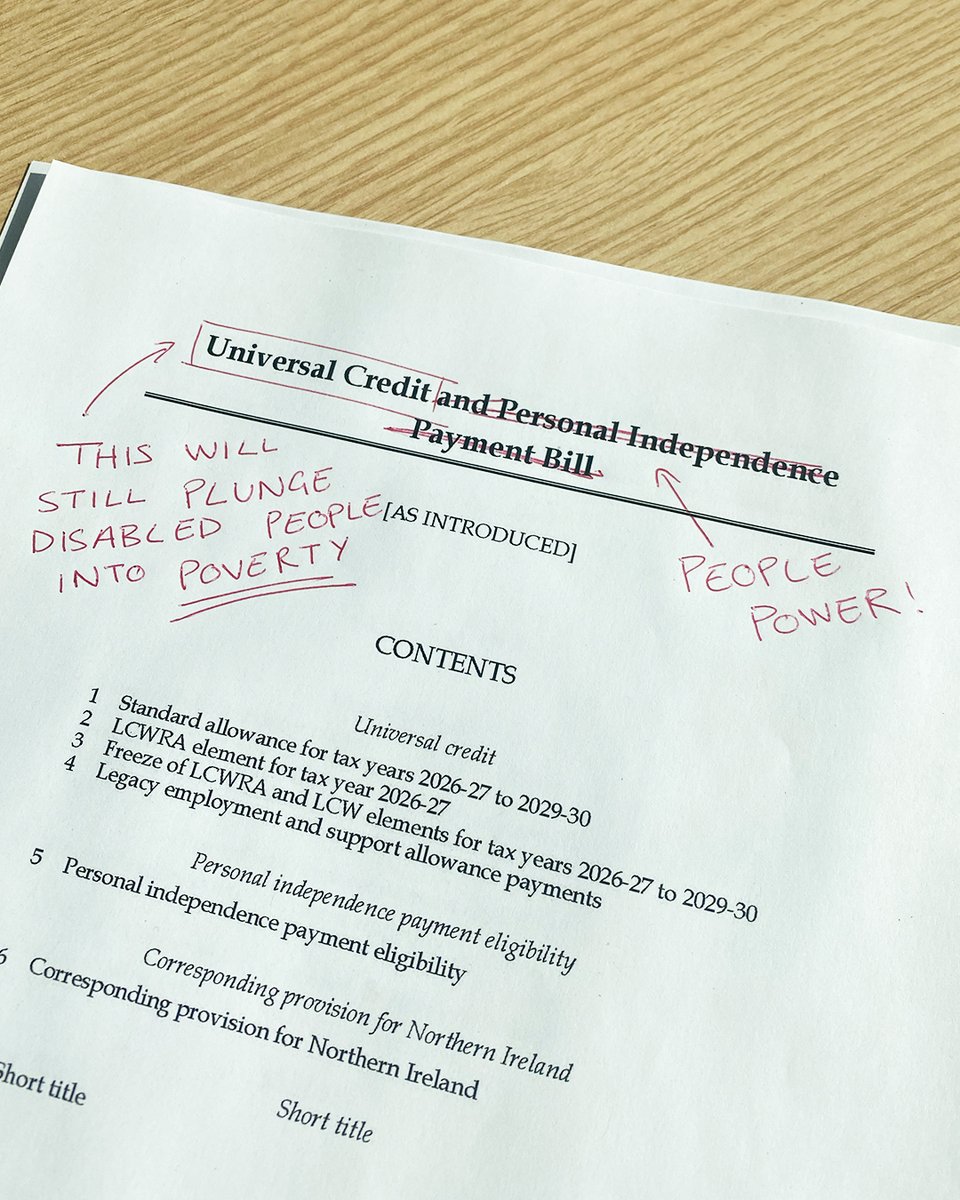 Universal Credit and Personal Independence
Payment Bill
THIS WILL
STILL PLUNGE
DISABLED PEOPLE
INTO POVERTY
[AS INTRODUCED]
PEOPLE
POWER!
CONTENTS
Universal credit
1 Standard allowance for tax years 2026-27 to 2029-30
2 LCWRA element for tax year 2026-27
3 Freeze of LCWRA and LCW elements for tax years 2026-27 to 2029-30
4 Legacy employment and support allowance payments
Personal independence payment eligibility
5 Personal independence payment eligibility
Corresponding provision for Northern Ireland
6 Corresponding provision for Northern Ireland
Short title
Short title